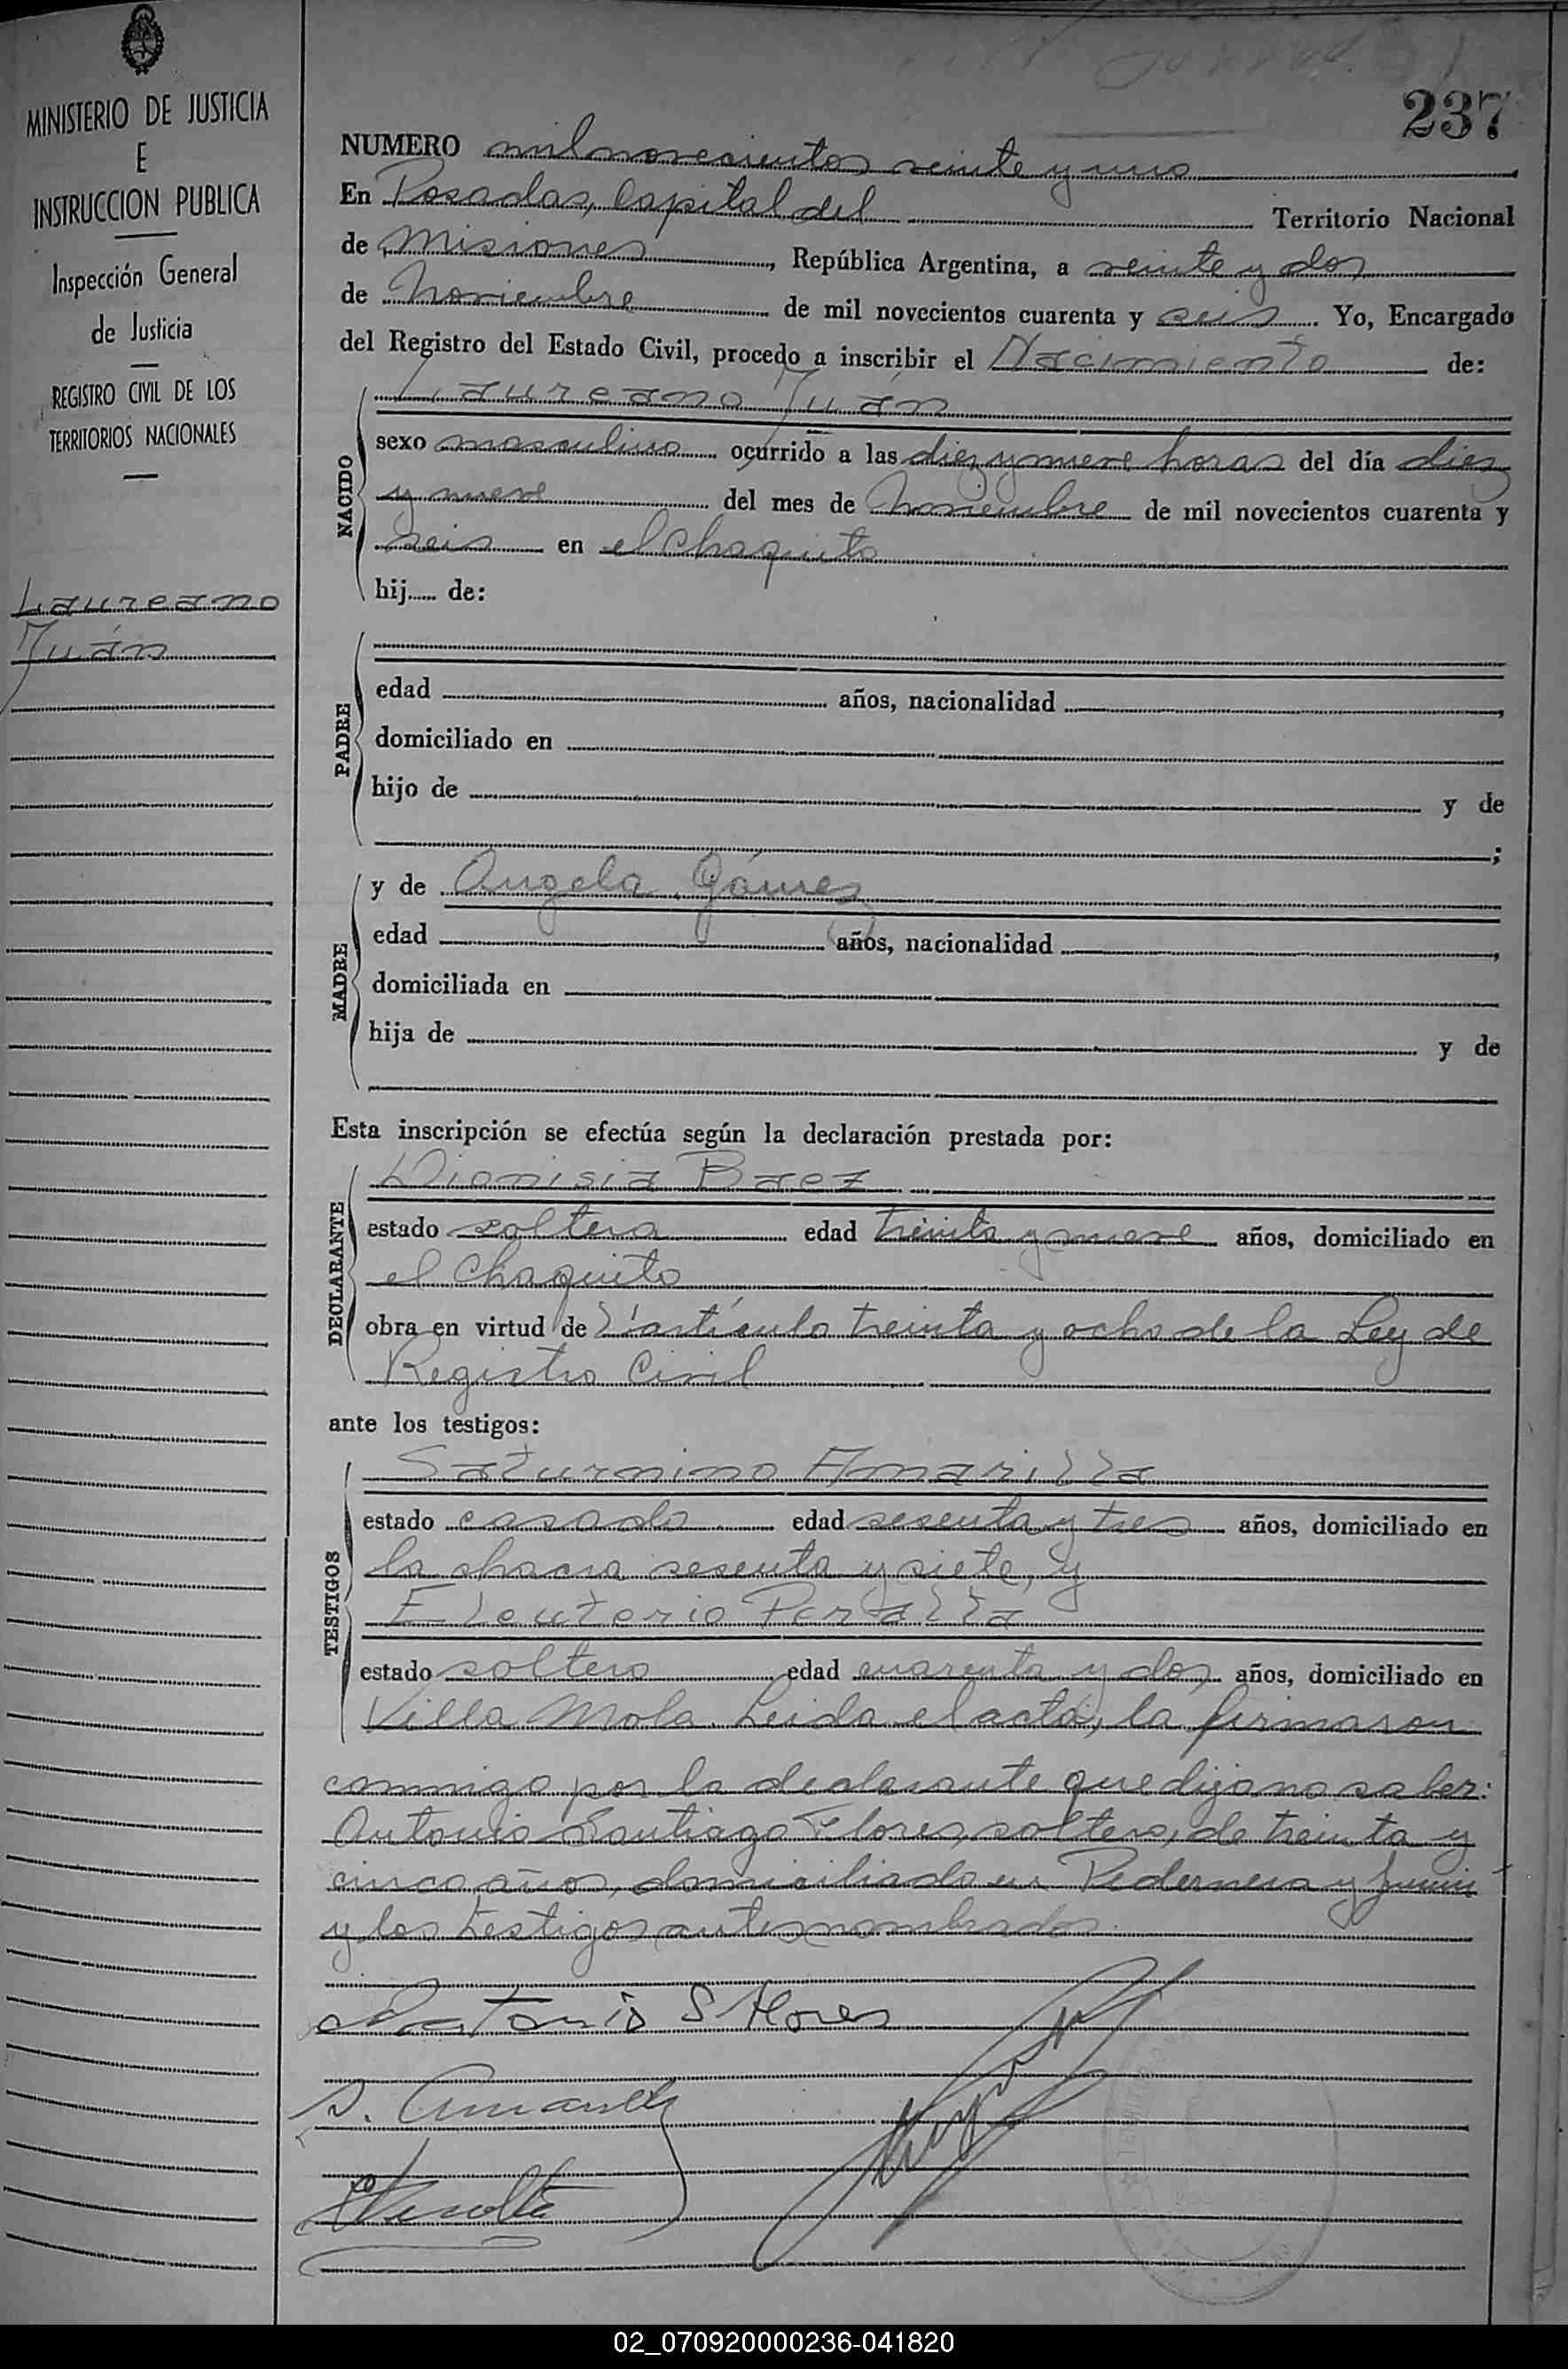 MINISTERIO DE JUSTICIA
E
INSTRUCCION PUBLICA
Inspección General
de Justicia
REGISTRO CIVIL DE LOS
TERRITORIOS NACIONALES
Laureano
Juán
237
NUMERO mil novecientos veinte y uno
En Posadas, Capital del Territorio Nacional
de Misiones, República Argentina, a veinte y dos
de Noviembre de mil novecientos cuarenta y seis. Yo, Encargado
del Registro del Estado Civil, procedo a inscribir el Nacimiento de:
Laureano Juán
NACIDO
sexo masculino ocurrido a las diez y nueve horas del día diez
y nueve del mes de Noviembre de mil novecientos cuarenta y
seis en el Chaquito
hij...... de:
PADRE
edad años, nacionalidad ,
domiciliado en
hijo de y de
;
MADRE
y de Angela Gómez
edad años, nacionalidad ,
domiciliada en
hija de y de
Esta inscripción se efectúa según la declaración prestada por:
DECLARANTE
Dionisia Baez
estado soltera edad treinta y nueve años, domiciliado en
el Chaquito
obra en virtud de l'artículo treinta y ocho de la Ley de
Registro Civil
ante los testigos:
TESTIGOS
Saturnino Amarilla
estado casado edad sesenta y tres años, domiciliado en
la chacra sesenta y siete, y
Eleuterio Peralta
estado soltero edad cuarenta y dos años, domiciliado en
Villa Mola. Leida el acta, la firmaron
conmigo por la declarante que dijo no saber:
Antonio Santiago Flores, soltero, de treinta y
cinco años, domiciliado en Pedernera y Junin
y los testigos antes nombrados.
Antonio S Flores
S. Amarilla
EPeralta
02_070920000236-041820